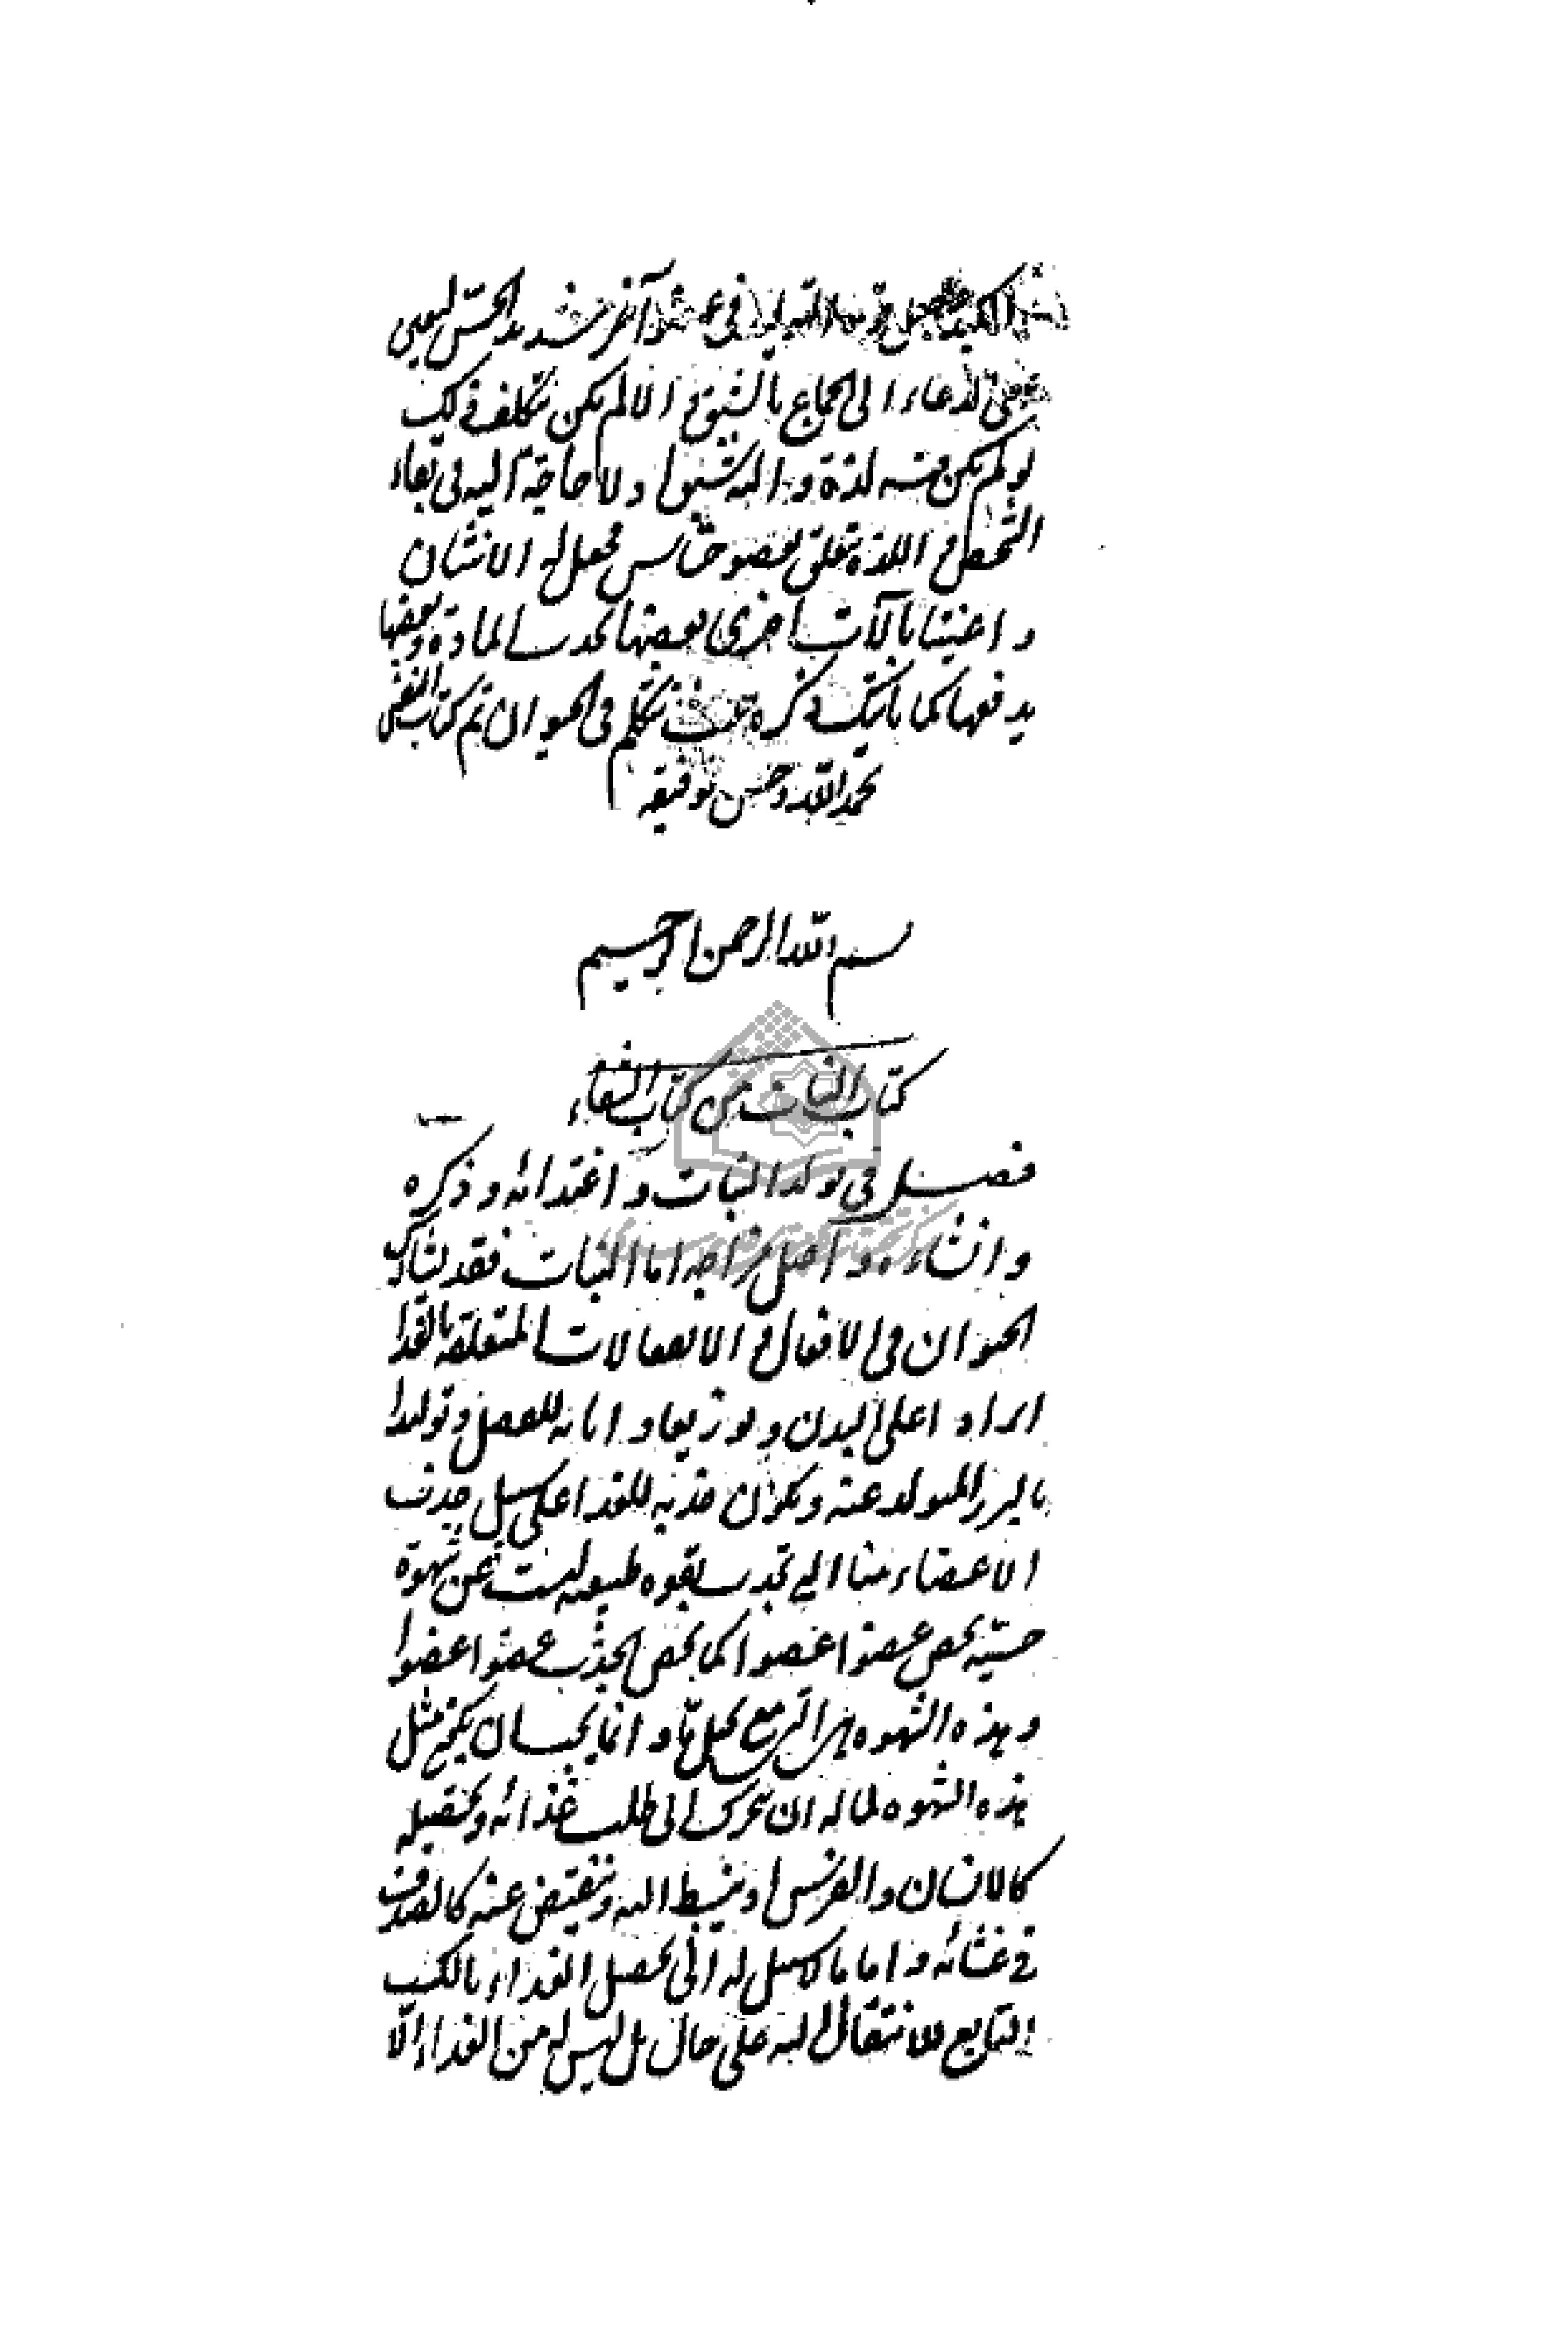 الكبد فى عضو آخر شديد الحس ليعين
لدعاء الى الجماع بالشبق و الا لم يكن يتكلف ذلك
لو لم يكن فيه لذة و اليه شبق اذ لا حاجة اليه فى بقاء
الشخص و اللذة تتعلق بعضو حساس فجعل له الانثيان
و اعينتا بآلات اخرى بعضها تجذب المادة و بعضها
يدفعها كما يأتيك ذكره حيث نتكلم فى الحيوان تم كتاب النفس
بحمد الله و حسن توفيقه
بسم الله الرحمن الرحيم
كتاب النبات من كتاب الشفاء
فصل فى تولد النبات و اغتذائه و ذكره
و انثاه و اصل مزاجه اما النبات فقد تشارك
الحيوان فى الافعال و الانفعالات المتعلقة بالغذا
ايرادا على البدن و توزيعا و ابانة للفضل و توليدا
بالبزر المتولد عنه و يكون جذبه للغذا على سبيل جذب
الاعضاء منا التى تجذب بقوة طبيعية ليست عن شهوة
حسية يخص عضوا عضوا كما يخص الجذب عضوا عضوا
و هذه الشهوة هى التى مع تخيل ما و انما يجب ان يكون مثل
هذه الشهوة لما له ان يتحرك الى طلب غذائه و تحصيله
كالانسان و الفرس او ينبسط اليه و ينقبض عنه كالصدف
فى غشائه و اما ما لا سبيل له الى تحصيل الغذاء بالكسب
التابع للانتقال اليه على حال بل ليس له من الغذاء الا